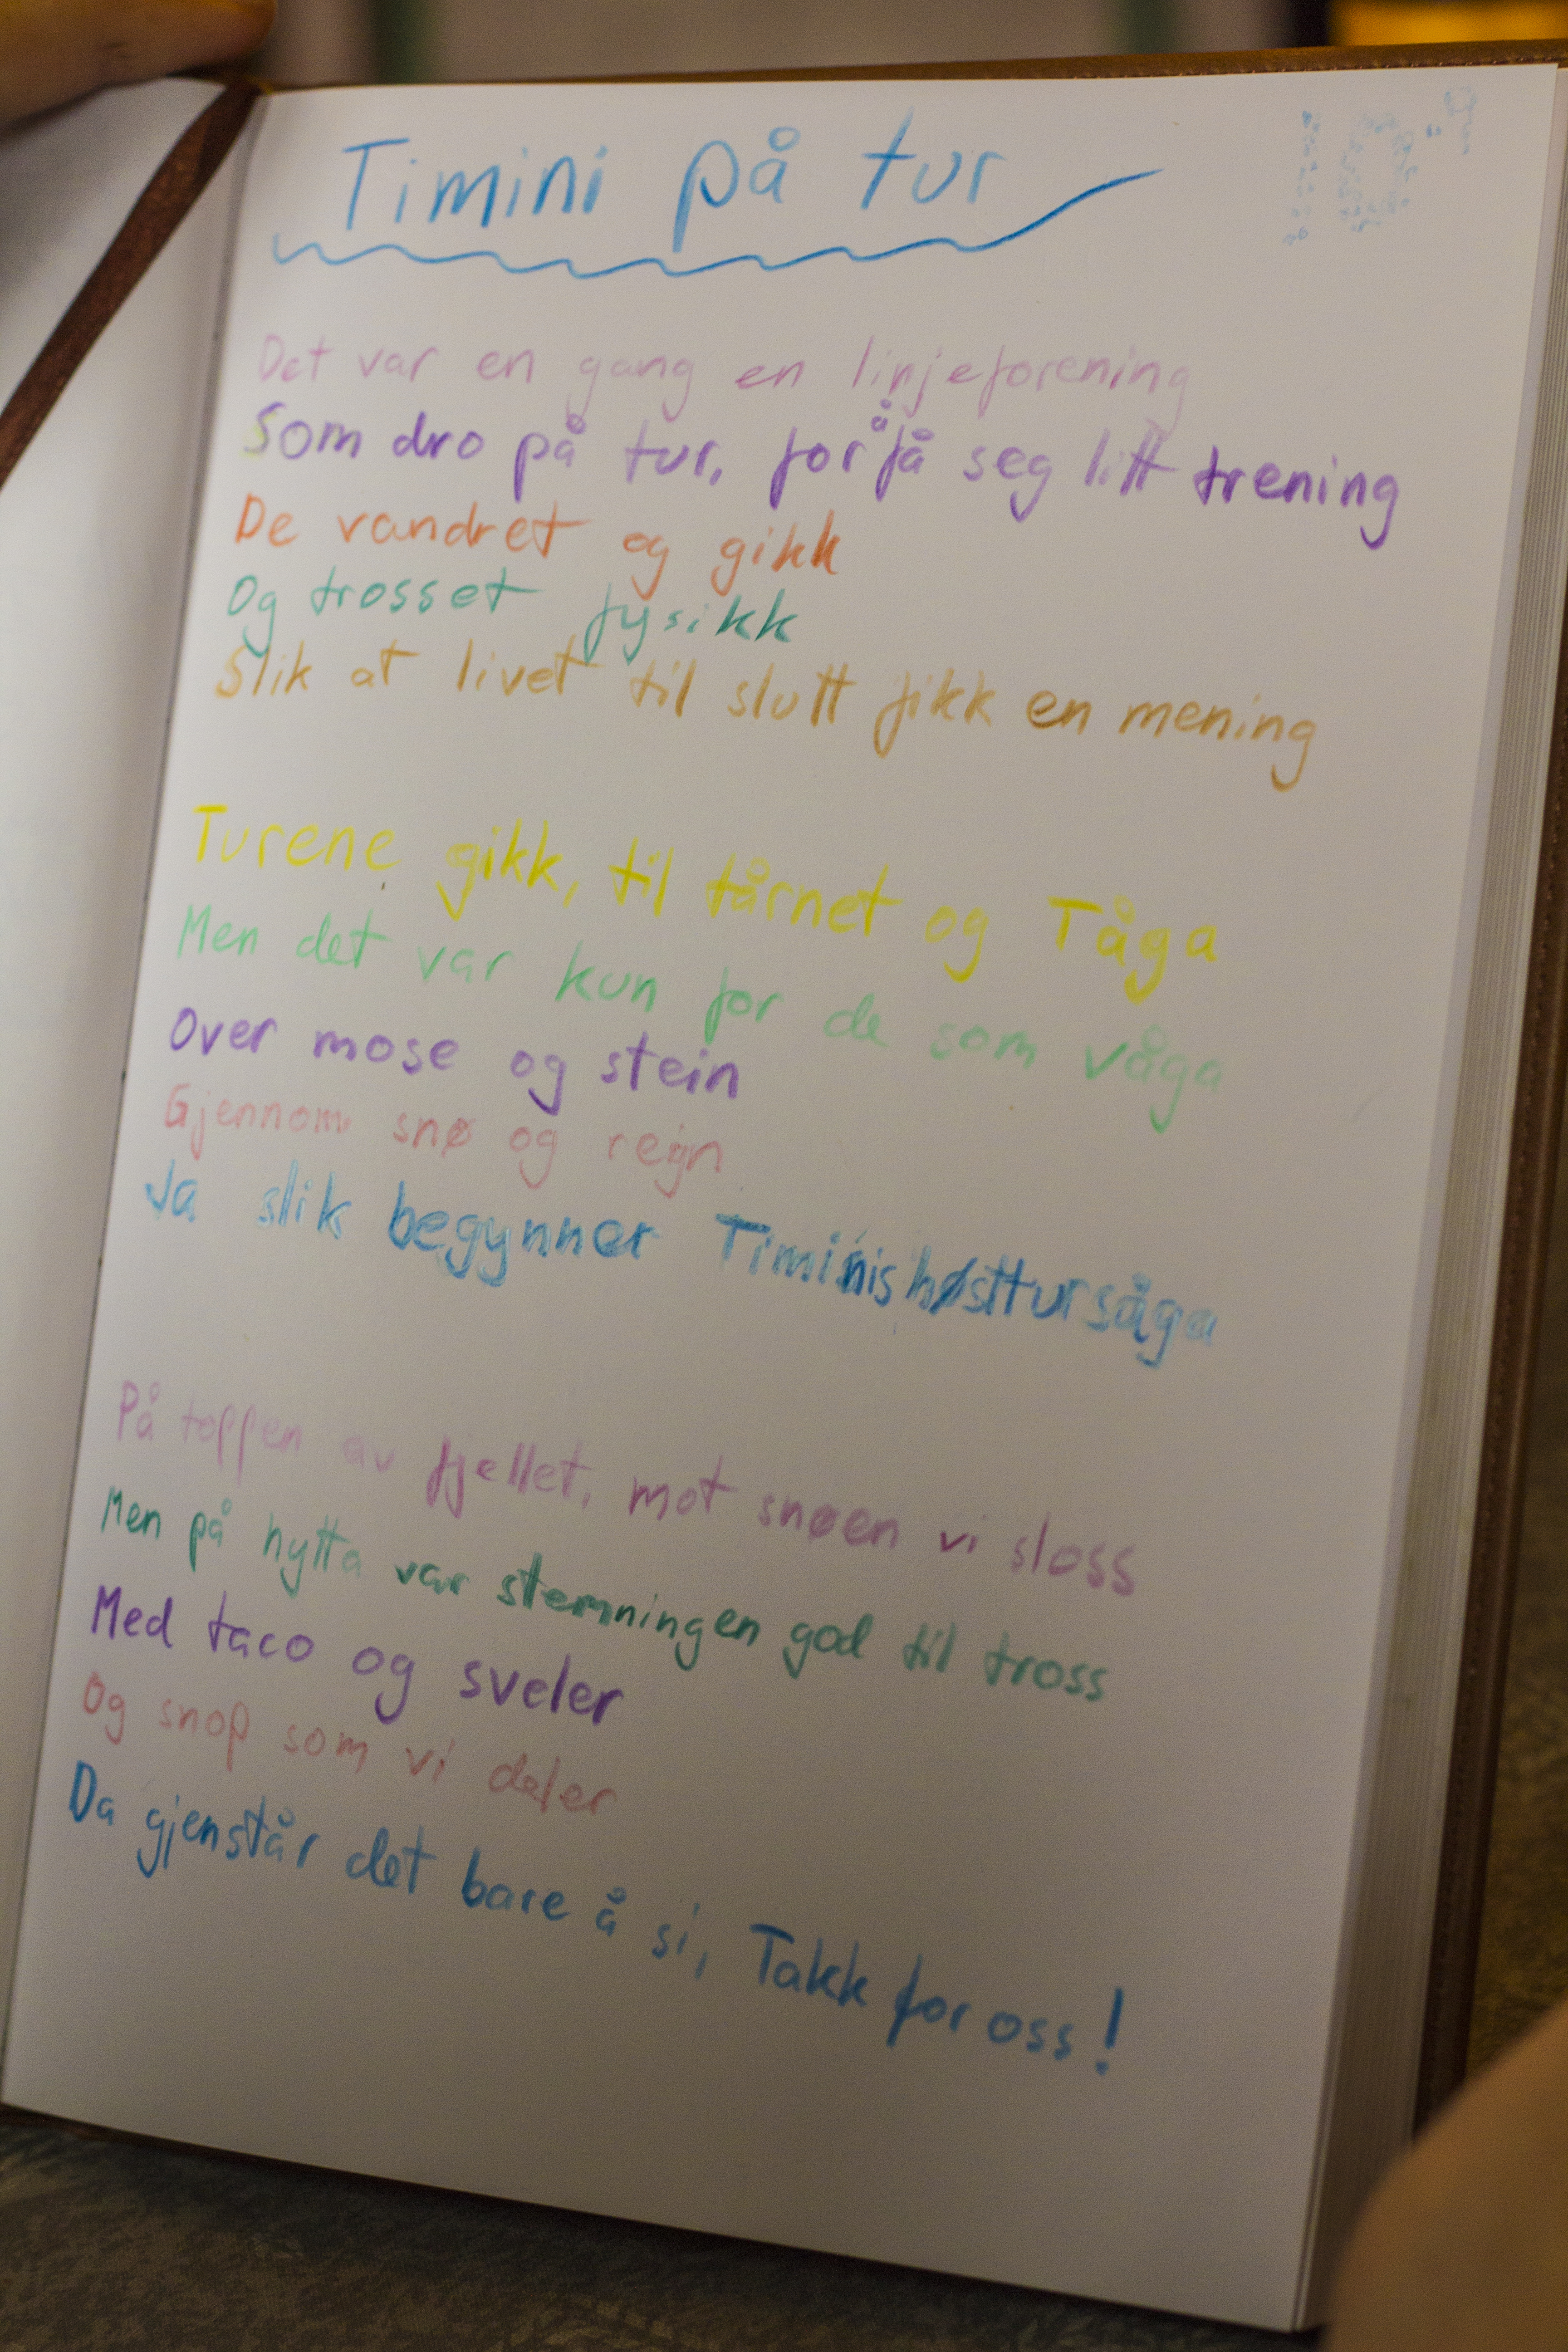 Timini på tur
Det var en gang en linjeforening
Som dro på tur, for å få seg litt trening
De vandret og gikk
Og trosset fysikk
Slik at livet til slutt fikk en mening
Turene gikk, til tårnet og Tåga
Men det var kun for de som våga
Over mose og stein
Gjennom snø og regn
Ja slik begynner Timinis høsttursåga
På toppen av fjellet, mot snøen vi sloss
Men på hytta var stemningen god til tross
Med taco og sveler
Og snop som vi deler
Da gjenstår det bare å si, Takk for oss!